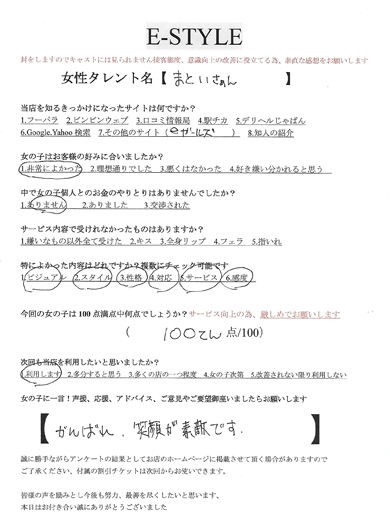 E-STYLE
封をしますのでキャストには見られません接客態度、意識向上の改善に役立てる為、素直な感想をお願いします
女性タレント名【 まといさん 】
当店を知るきっかけになったサイトは何ですか?
1.フーバラ 2.ビンビンウェブ 3.口コミ情報局 4.駅チカ 5.デリヘルじゃぱん
6.Google.Yahoo 検索 7.その他のサイト( eガールズ ) 8.知人の紹介
女の子はお客様の好みに合いましたか?
1.非常によかった 2.理想通りでした 3.悪くはなかった 4.好き嫌い分かれると思う
中で女の子個人とのお金のやりとりはありませんでしたか?
1.ありません 2.ありました 3.交渉された
サービス内容で受けれなかったものはありますか?
1.嫌いなもの以外全て受けた 2.キス 3.全身リップ 4.フェラ 5.指いれ
特によかった内容はどれですか?複数にチェック可能です
1.ビジュアル 2.スタイル 3.性格 4.対応 5.サービス 6.感度
今回の女の子は 100 点満点中何点でしょうか?サービス向上の為、厳しめでお願いします
( 100てん 点/100)
次回も当店を利用したいと思いましたか?
1.利用します 2.多分すると思う 3.多くの店の一つ程度 4.女の子次第 5.改善されない限り利用しない
女の子に一言!声援、応援、アドバイス、ご意見やご要望御座いましたらお願いします
【 がんばれ、笑顔が素敵です. 】
誠に勝手ながらアンケートの結果としてお店のホームページに掲載させて頂く場合がありますので
ご了承ください、付属の割引チケットは次回からお使いできます。
皆様の声を励みとし今後も努力、最善を尽くしたいと思います、
本日はお付き合い誠にありがとうございました